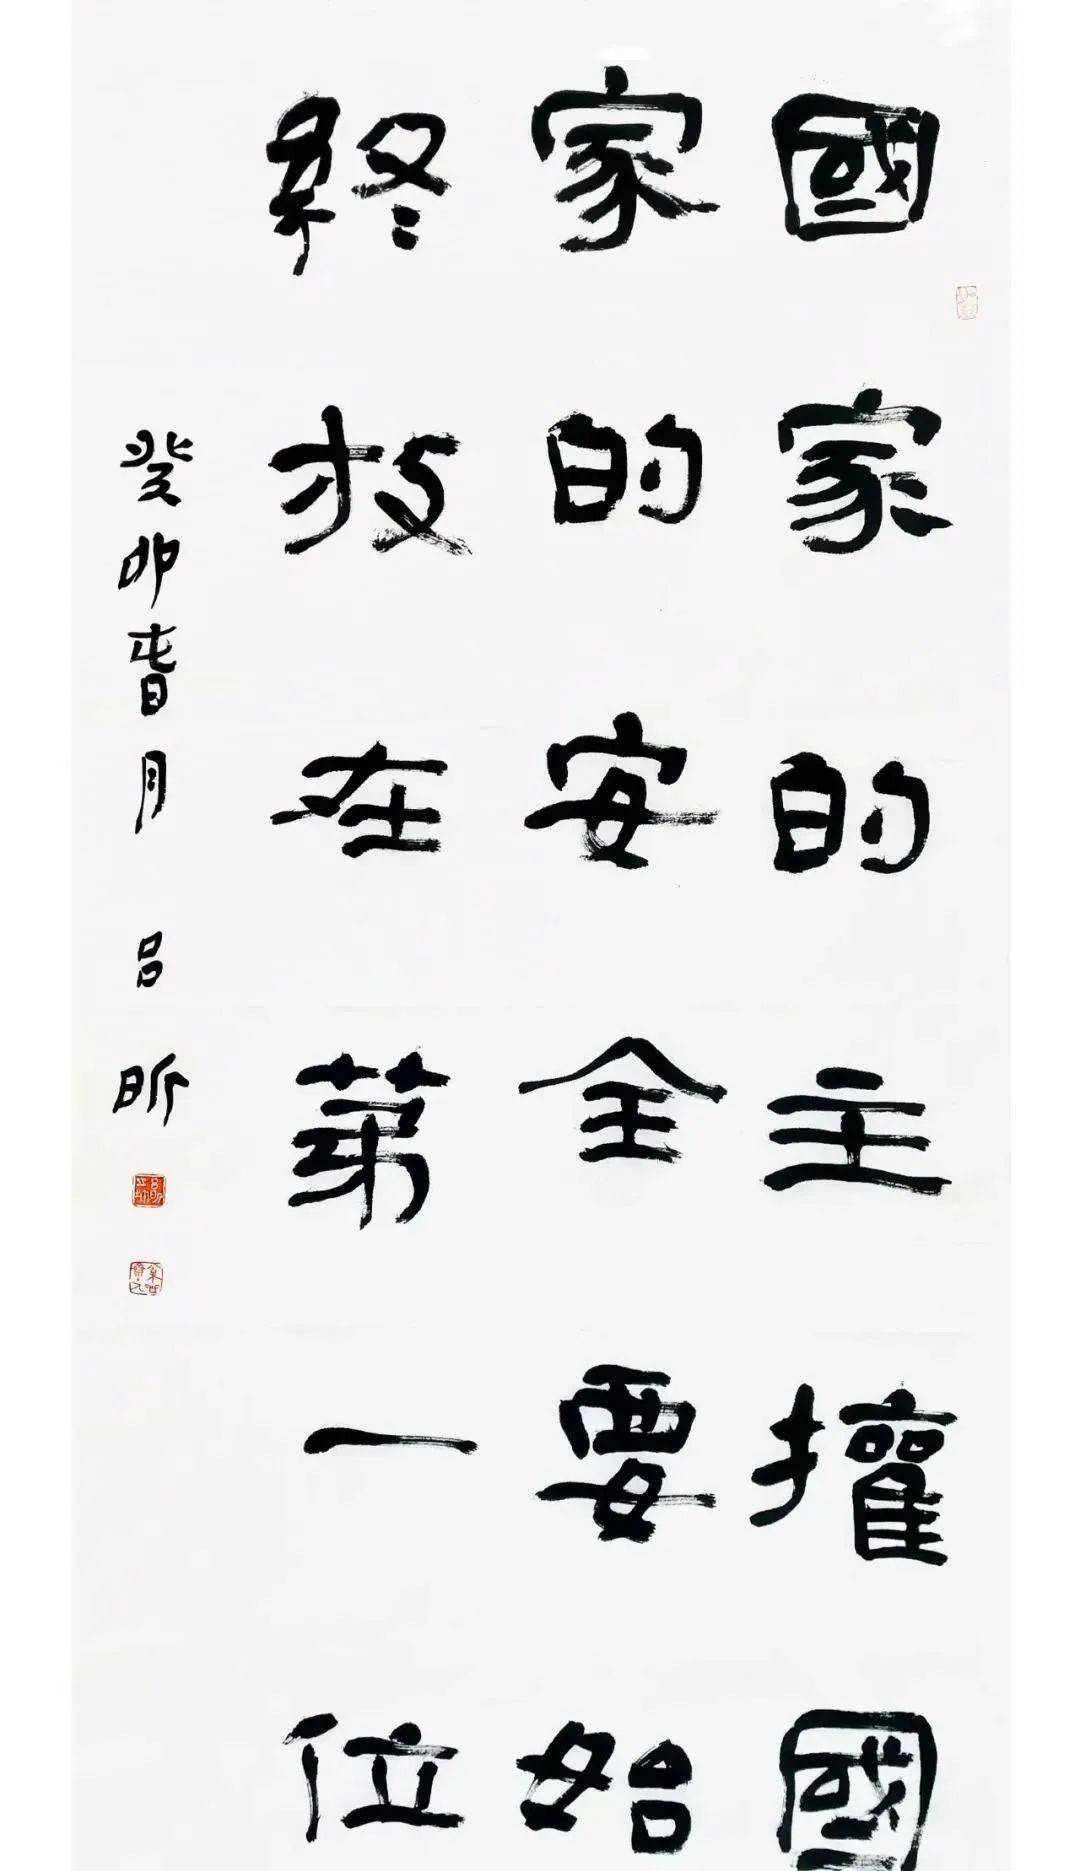 國家的主權國
家的安全要始
終放在第一位
癸卯春月 吕昕